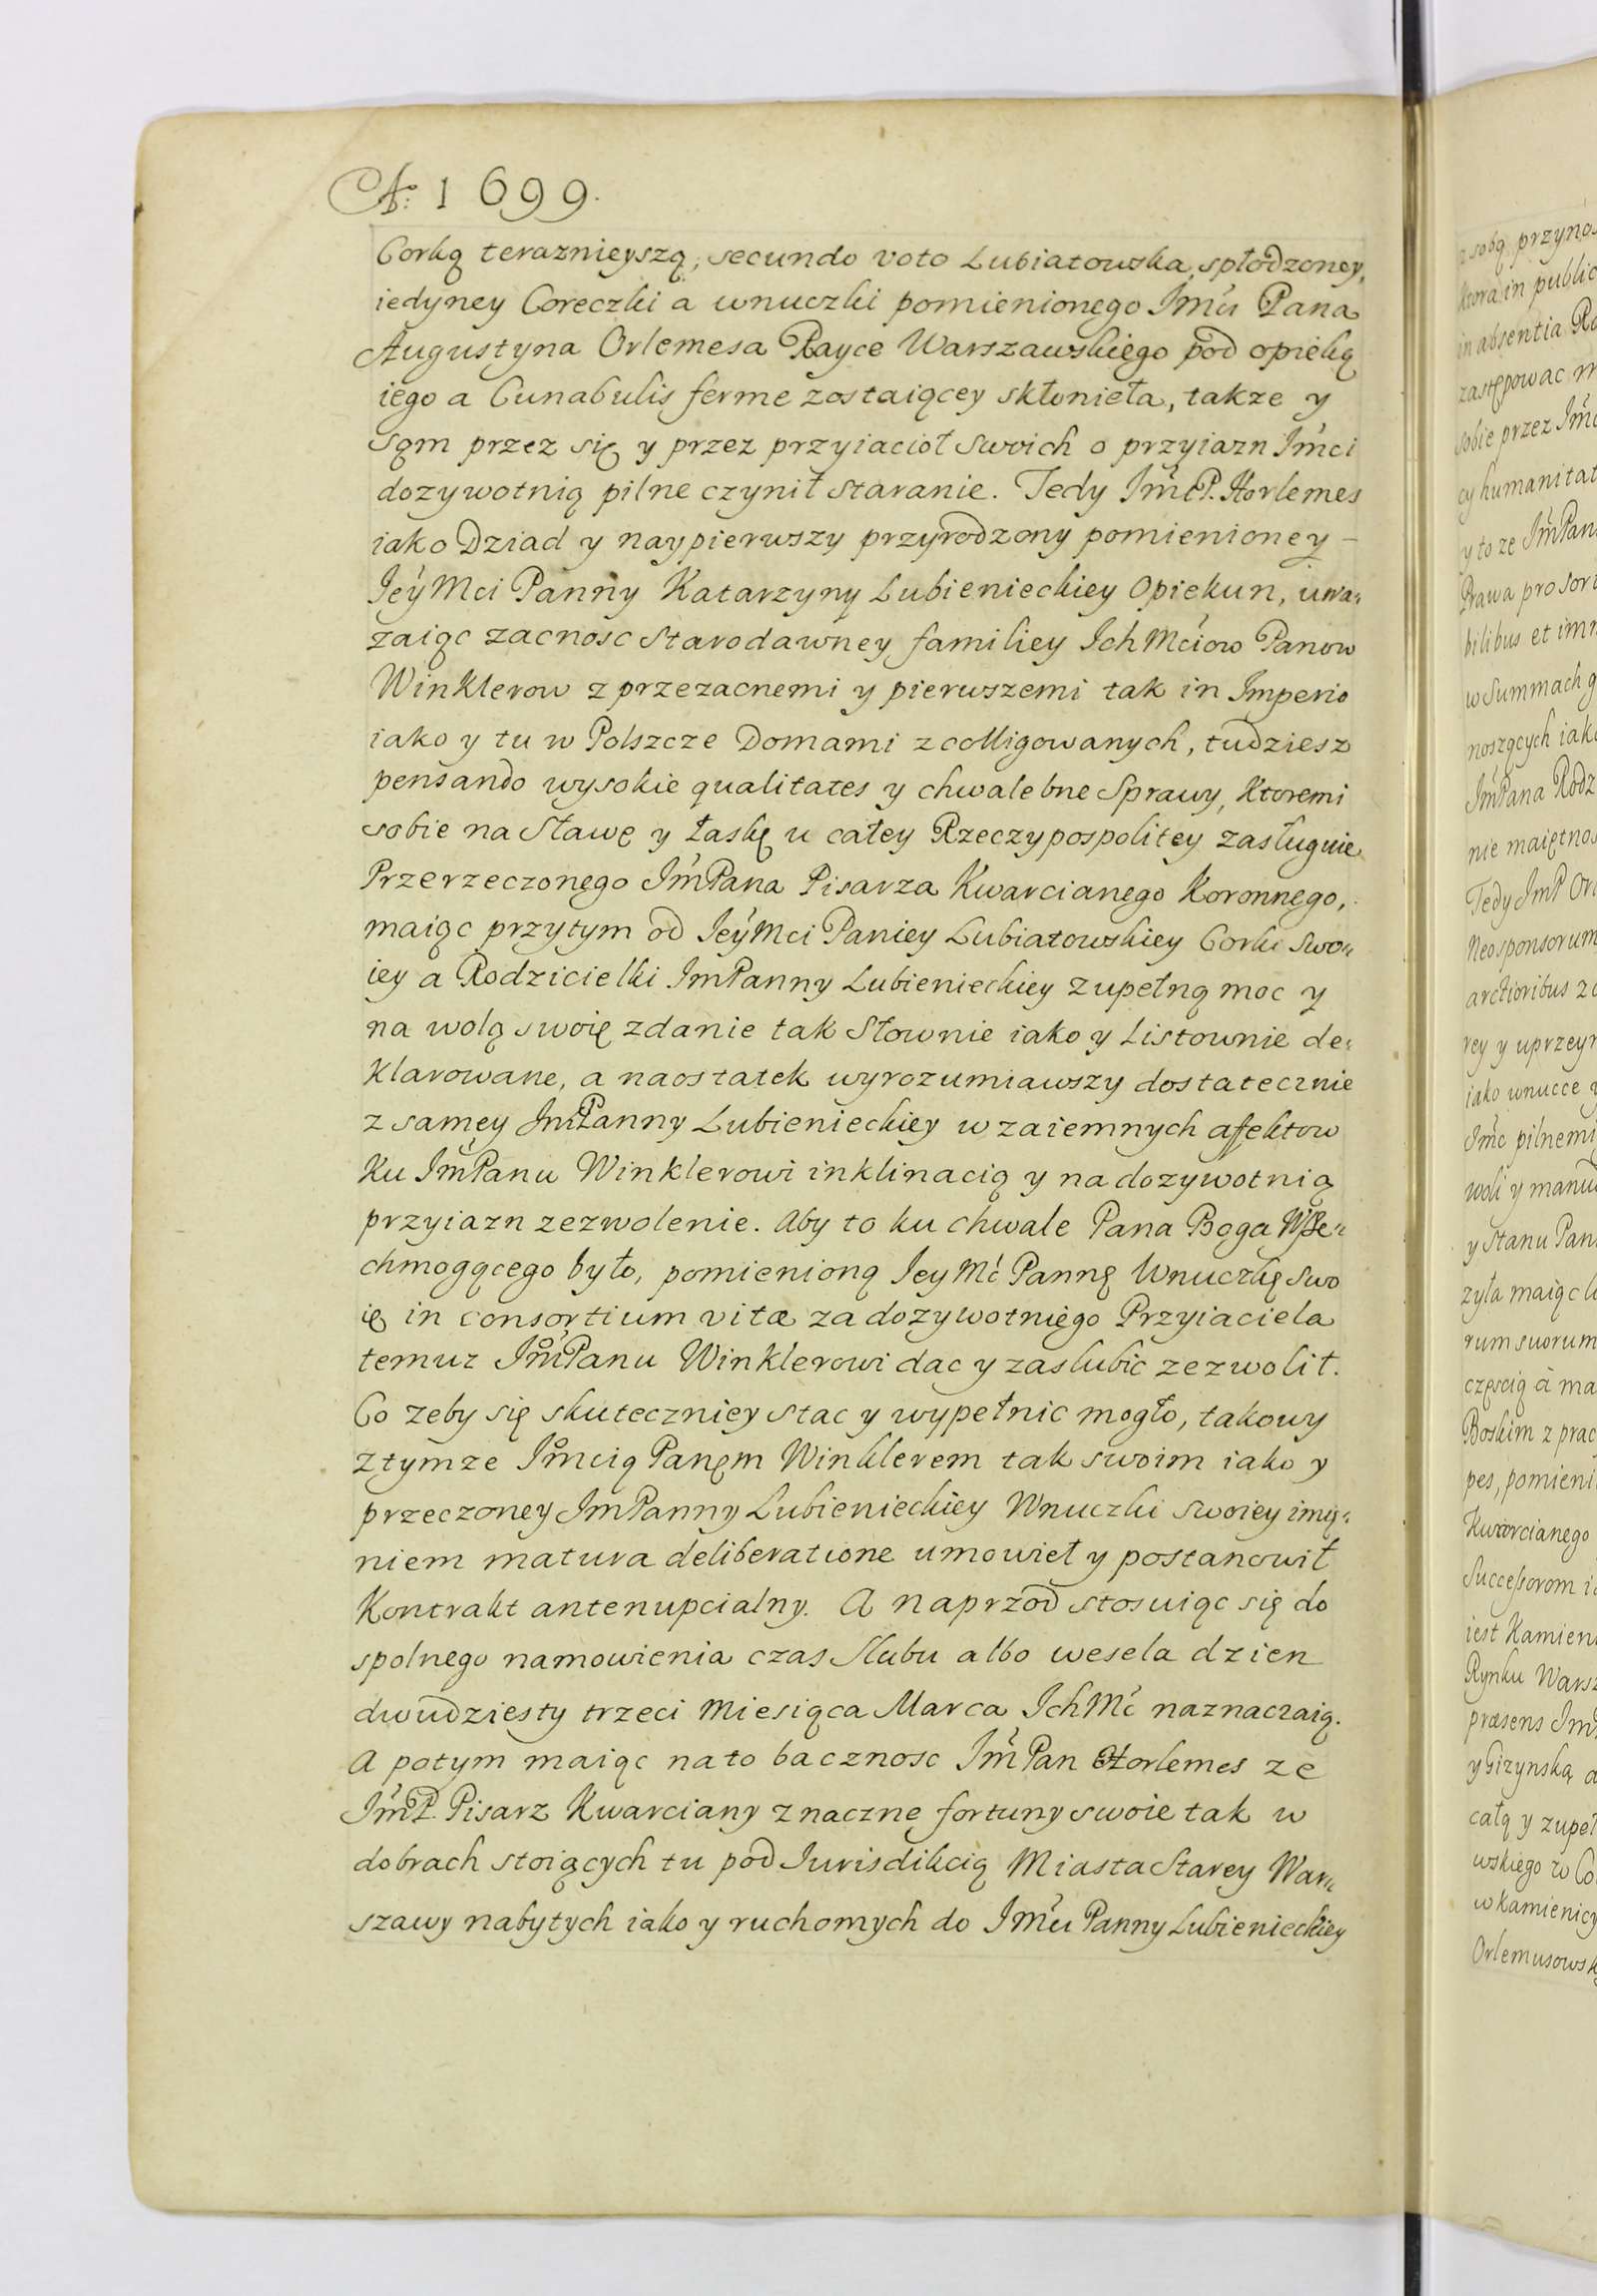 Ao: 1699.
Corką teraznieyszą, secundo voto Lubiatowska, spłodzoney,
iedyney Coreczki a wnuczki pomienionego Jmći Pana
Augustyna Orlemesa Rayce Warszawskiego pod opieką
iego a Cunabulis ferme zostaiącey skłonieła, takze y
sąm przez się y przez przyiacioł swoich o przyiazn Jmći
dozywotnią pilne czynił staranie. Tedy JmćP. Horlemes
iako Dziad y naypierwszy przyrodzony pomienioney –
JeyMci Panny Katarzyny Lubienieckiey Opiekun, uwa-
zaiąc zacnosc starodawney familiey Ich Mćiow Panow
Winklerow z przezacnemi y pierwszemi tak in Imperio
iako y tu w Polszcze Domami zcolligowanych, tudziesz
pensando wysokie qualitates y chwalebne Sprawy, Ktoremi
sobie na Sławę y Łaskę u całey Rzeczypospolitey zasługuie
Przerzeczonego JmćPana Pisarza Kwarcianego Koronnego,
maiąc przytym od JeyMci Paniey Lubiatowskiey Corki swo-
iey a Rodzicielki JmPanny Lubienieckiey zupełną moc y
na wolą swoię zdanie tak Słownie iako y Listownie de-
klarowane, a naostatek wyrozumiawszy dostatecznie
z samey JmPanny Lubienieckiey wzaiemnych affektow
Ku JmćPanu Winklerowi inklinacią y na dozywotnią
przyiazn zezwolenie. Aby to ku chwale Pana Boga Wsze-
chmogącego było, pomienioną JeyMć Pannę Wnuczkę swo
ię in consortium vitæ za dozywotniego Przyiaciela
temuz JmćPanu Winklerowi dac y zaslubic zezwolił.
Co zeby się skuteczniey stac y wypełnic mogło, takowy
ztymze Jmcią Panęm Winklerem tak swoim iako y
przeczoney JmPanny Lubienieckiey Wnuczki swoiey imię-
niem matura deliberatione umowieł y postanowił
Kontrakt antenupcialny. A naprzod stosuiąc się do
spolnego namowienia czas Slubu albo wesela dzien
dwudziesty trzeci Miesiąca Marca IchMć naznaczaią.
A potym maiąc na to bacznosc JmćPan Horlemes ze
JmćP. Pisarz Kwarciany znaczne fortuny swoie tak w
dobrach stoiących tu pod Jurisdikcią Miasta Starey War-
szawy nabytych iako y ruchomych do Jmći Panny Lubienieckiey
z sobą przyno
Ktora in public
in absentia Ra
zastępowac m
sobie przez Jmć
cy humanitat
y to ze JmćPan
Prawa pro sor
bilibus et im
w Summach g
noszących iak
JmćPana Rodz
nie maiętnos
Tedy JmP Or
Neosponsorum
arctioribus z
rey y uprzey
iako wnucce y
Jmć pilnemi
woli y manu
y Stanu Pan
zyła maiąc
rum suorum
częscią à ma
Boskim z prac
pes, pomieni
Kwarcianego
Successorom i
iest Kamien
Rynku Wars
præsens Jm
y Gizynską a
całą y zupeł
wskiego w Co
w kamienicy
Orlemusowsk